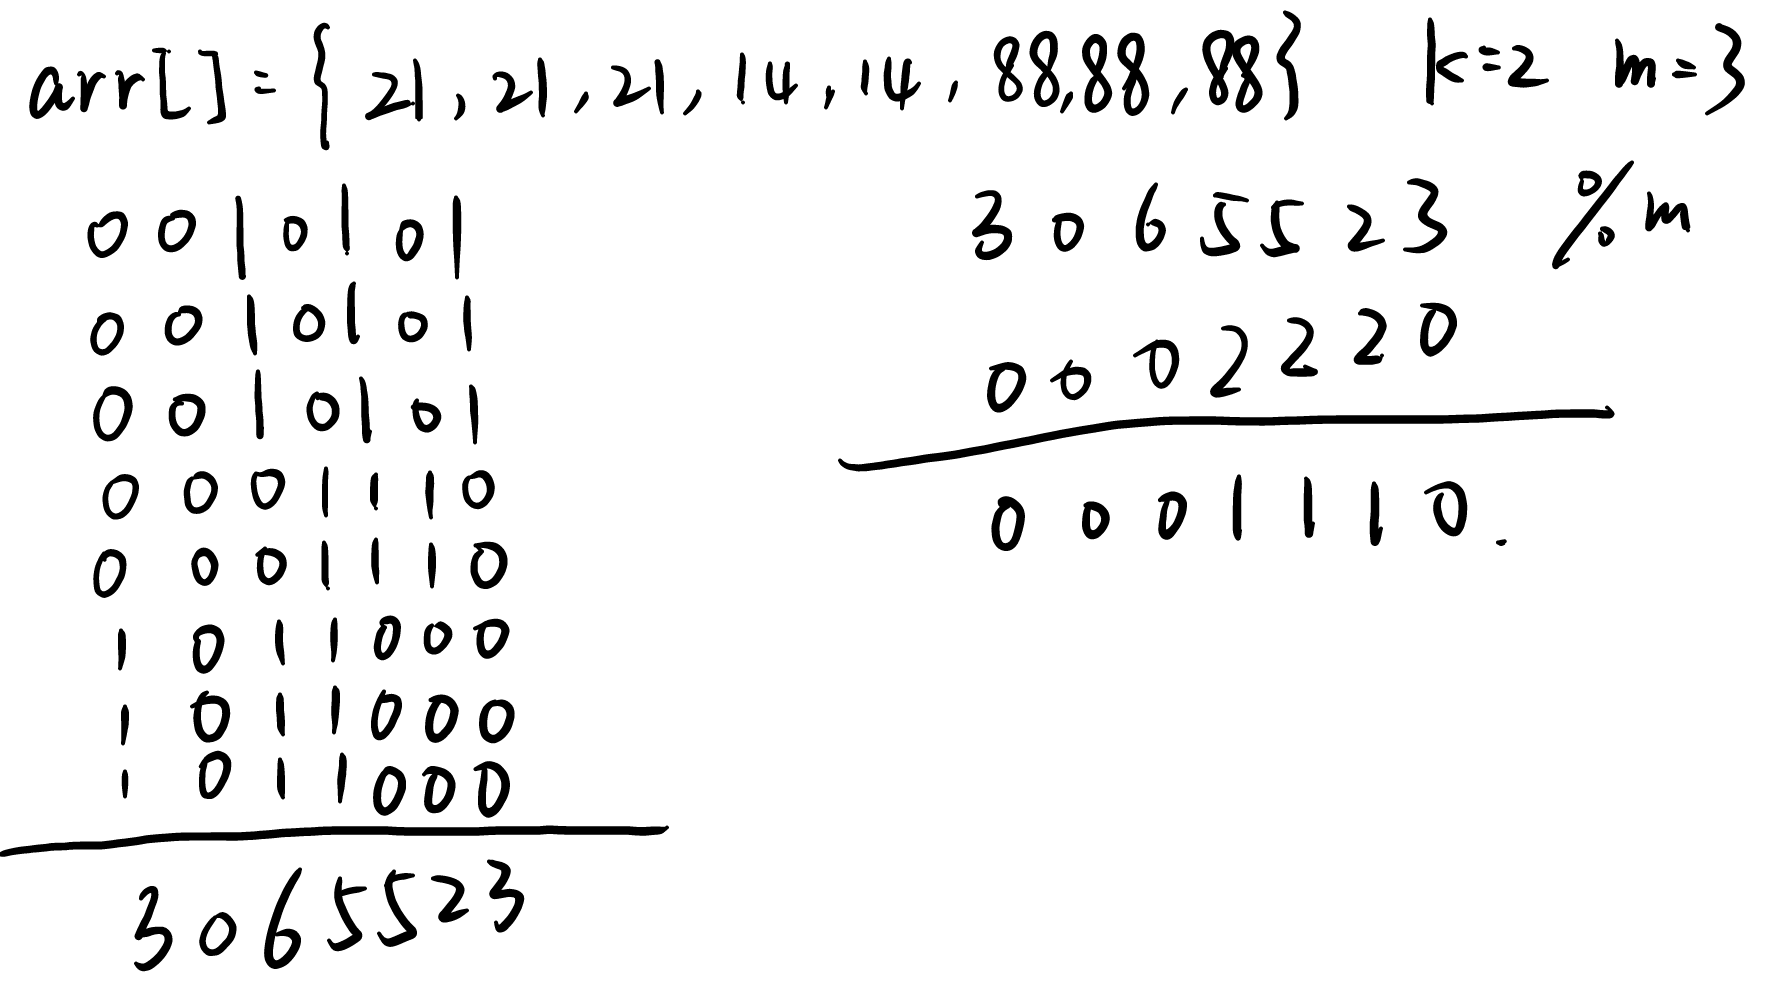 arr[] = { 21, 21, 21, 14, 14, 88, 88, 88} k=2 m=3
0 0 1 0 1 0 1
0 0 1 0 1 0 1
0 0 1 0 1 0 1
0 0 0 1 1 1 0
0 0 0 1 1 1 0
1 0 1 1 0 0 0
1 0 1 1 0 0 0
1 0 1 1 0 0 0
3 0 6 5 5 2 3
3 0 6 5 5 2 3 % m
0 0 0 2 2 2 0
0 0 0 1 1 1 0.